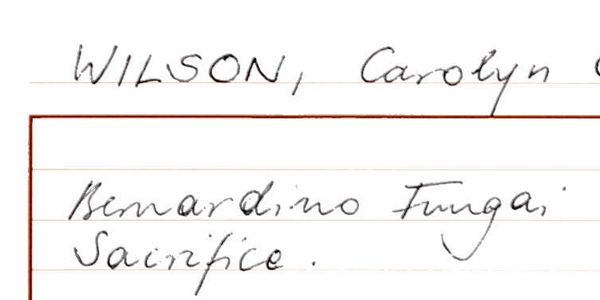 WILSON, Carolyn
Bernardino Fungai
Sacrifice.